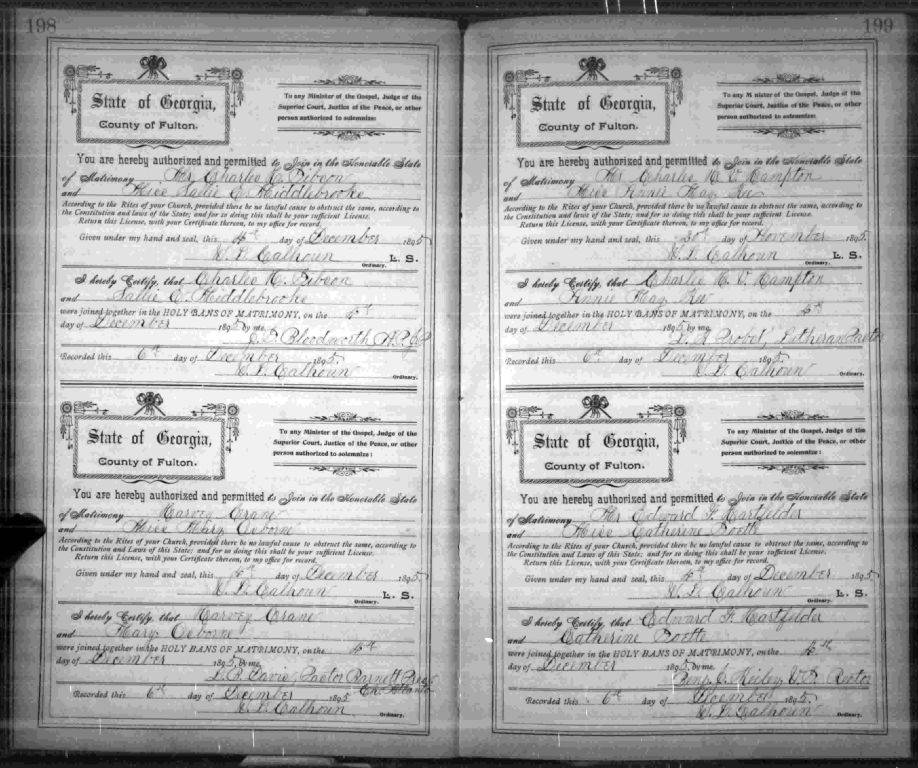 198
State of Georgia,
County of Fulton.
To any Minister of the Gospel, Judge of the
Superior Court, Justice of the Peace, or other
person authorized to solemnize:
You are hereby authorized and permitted to Join in the Honorable State
of Matrimony Mr Charles E. Gibson
and Miss Sallie E. Middlebrooks
According to the Rites of your Church, provided there be no lawful cause to obstruct the same, according to
the Constitution and Laws of the State; and for so doing this shall be your sufficient License.
Return this License, with your Certificate thereon, to my office for record.
Given under my hand and seal, this 4th day of December 1895
Calhoun L. S.
Ordinary.
I hereby Certify, that Charles Gibson
and Sallie E. Middlebrooks
were joined together in the HOLY BANS OF MATRIMONY, on the
day of December 1895 by me,
Bloodworth
Recorded this 6th day of December 1895
Calhoun
Ordinary.
State of Georgia,
County of Fulton.
To any Minister of the Gospel, Judge of the
Superior Court, Justice of the Peace, or other
person authorized to solemnize:
You are hereby authorized and permitted to Join in the Honorable State
of Matrimony Harvey Crane
and Miss Mary Osborne
According to the Rites of your Church, provided there be no lawful cause to obstruct the same, according to
the Constitution and Laws of this State; and for so doing this shall be your sufficient License.
Return this License, with your Certificate thereon, to my office for record.
Given under my hand and seal, this day of December 1895
Calhoun L. S.
Ordinary.
I hereby Certify, that Harvey Crane
and Mary Osborne
were joined together in the HOLY BANS OF MATRIMONY, on the
day of December 1895, by me,
Davis, Pastor Barnett Pres
Ch. Atlanta
Recorded this 6th day of December 1895
Calhoun
Ordinary.
199
State of Georgia,
County of Fulton.
To any Minister of the Gospel, Judge of the
Superior Court, Justice of the Peace, or other
person authorized to solemnize:
You are hereby authorized and permitted to Join in the Honorable State
of Matrimony Mr Charlie Hampton
and Miss May
According to the Rites of your Church, provided there be no lawful cause to obstruct the same, according to
the Constitution and laws of the State; and for so doing this shall be your sufficient License.
Return this License, with your Certificate thereon, to my office for record.
Given under my hand and seal, this 30th day of November 1895
Calhoun L. S.
Ordinary.
I hereby Certify, that Charlie Hampton
and May
were joined together in the HOLY BANS OF MATRIMONY, on the
day of December 1895 by me,
Probst, Lutheran Pastor
Recorded this 6th day of December 1895.
Calhoun
Ordinary.
State of Georgia,
County of Fulton.
To any Minister of the Gospel, Judge of the
Superior Court, Justice of the Peace, or other
person authorized to solemnize:
You are hereby authorized and permitted to Join in the Honorable State
of Matrimony Mr Edward F. Hartfelder
and Miss Catherine
According to the Rites of your Church, provided there be no lawful cause to obstruct the same, according to
the Constitution and Laws of this State; and for so doing this shall be your sufficient License.
Return this License, with your Certificate thereon, to my office for record.
Given under my hand and seal, this day of December 1895
Calhoun L. S.
Ordinary.
I hereby Certify, that Edward F. Hartfelder
and Catherine
were joined together in the HOLY BANS OF MATRIMONY, on the
day of December 1895, by me,
Benj. J. Keiley, Rector
Recorded this 6th day of December 1895.
Calhoun
Ordinary.